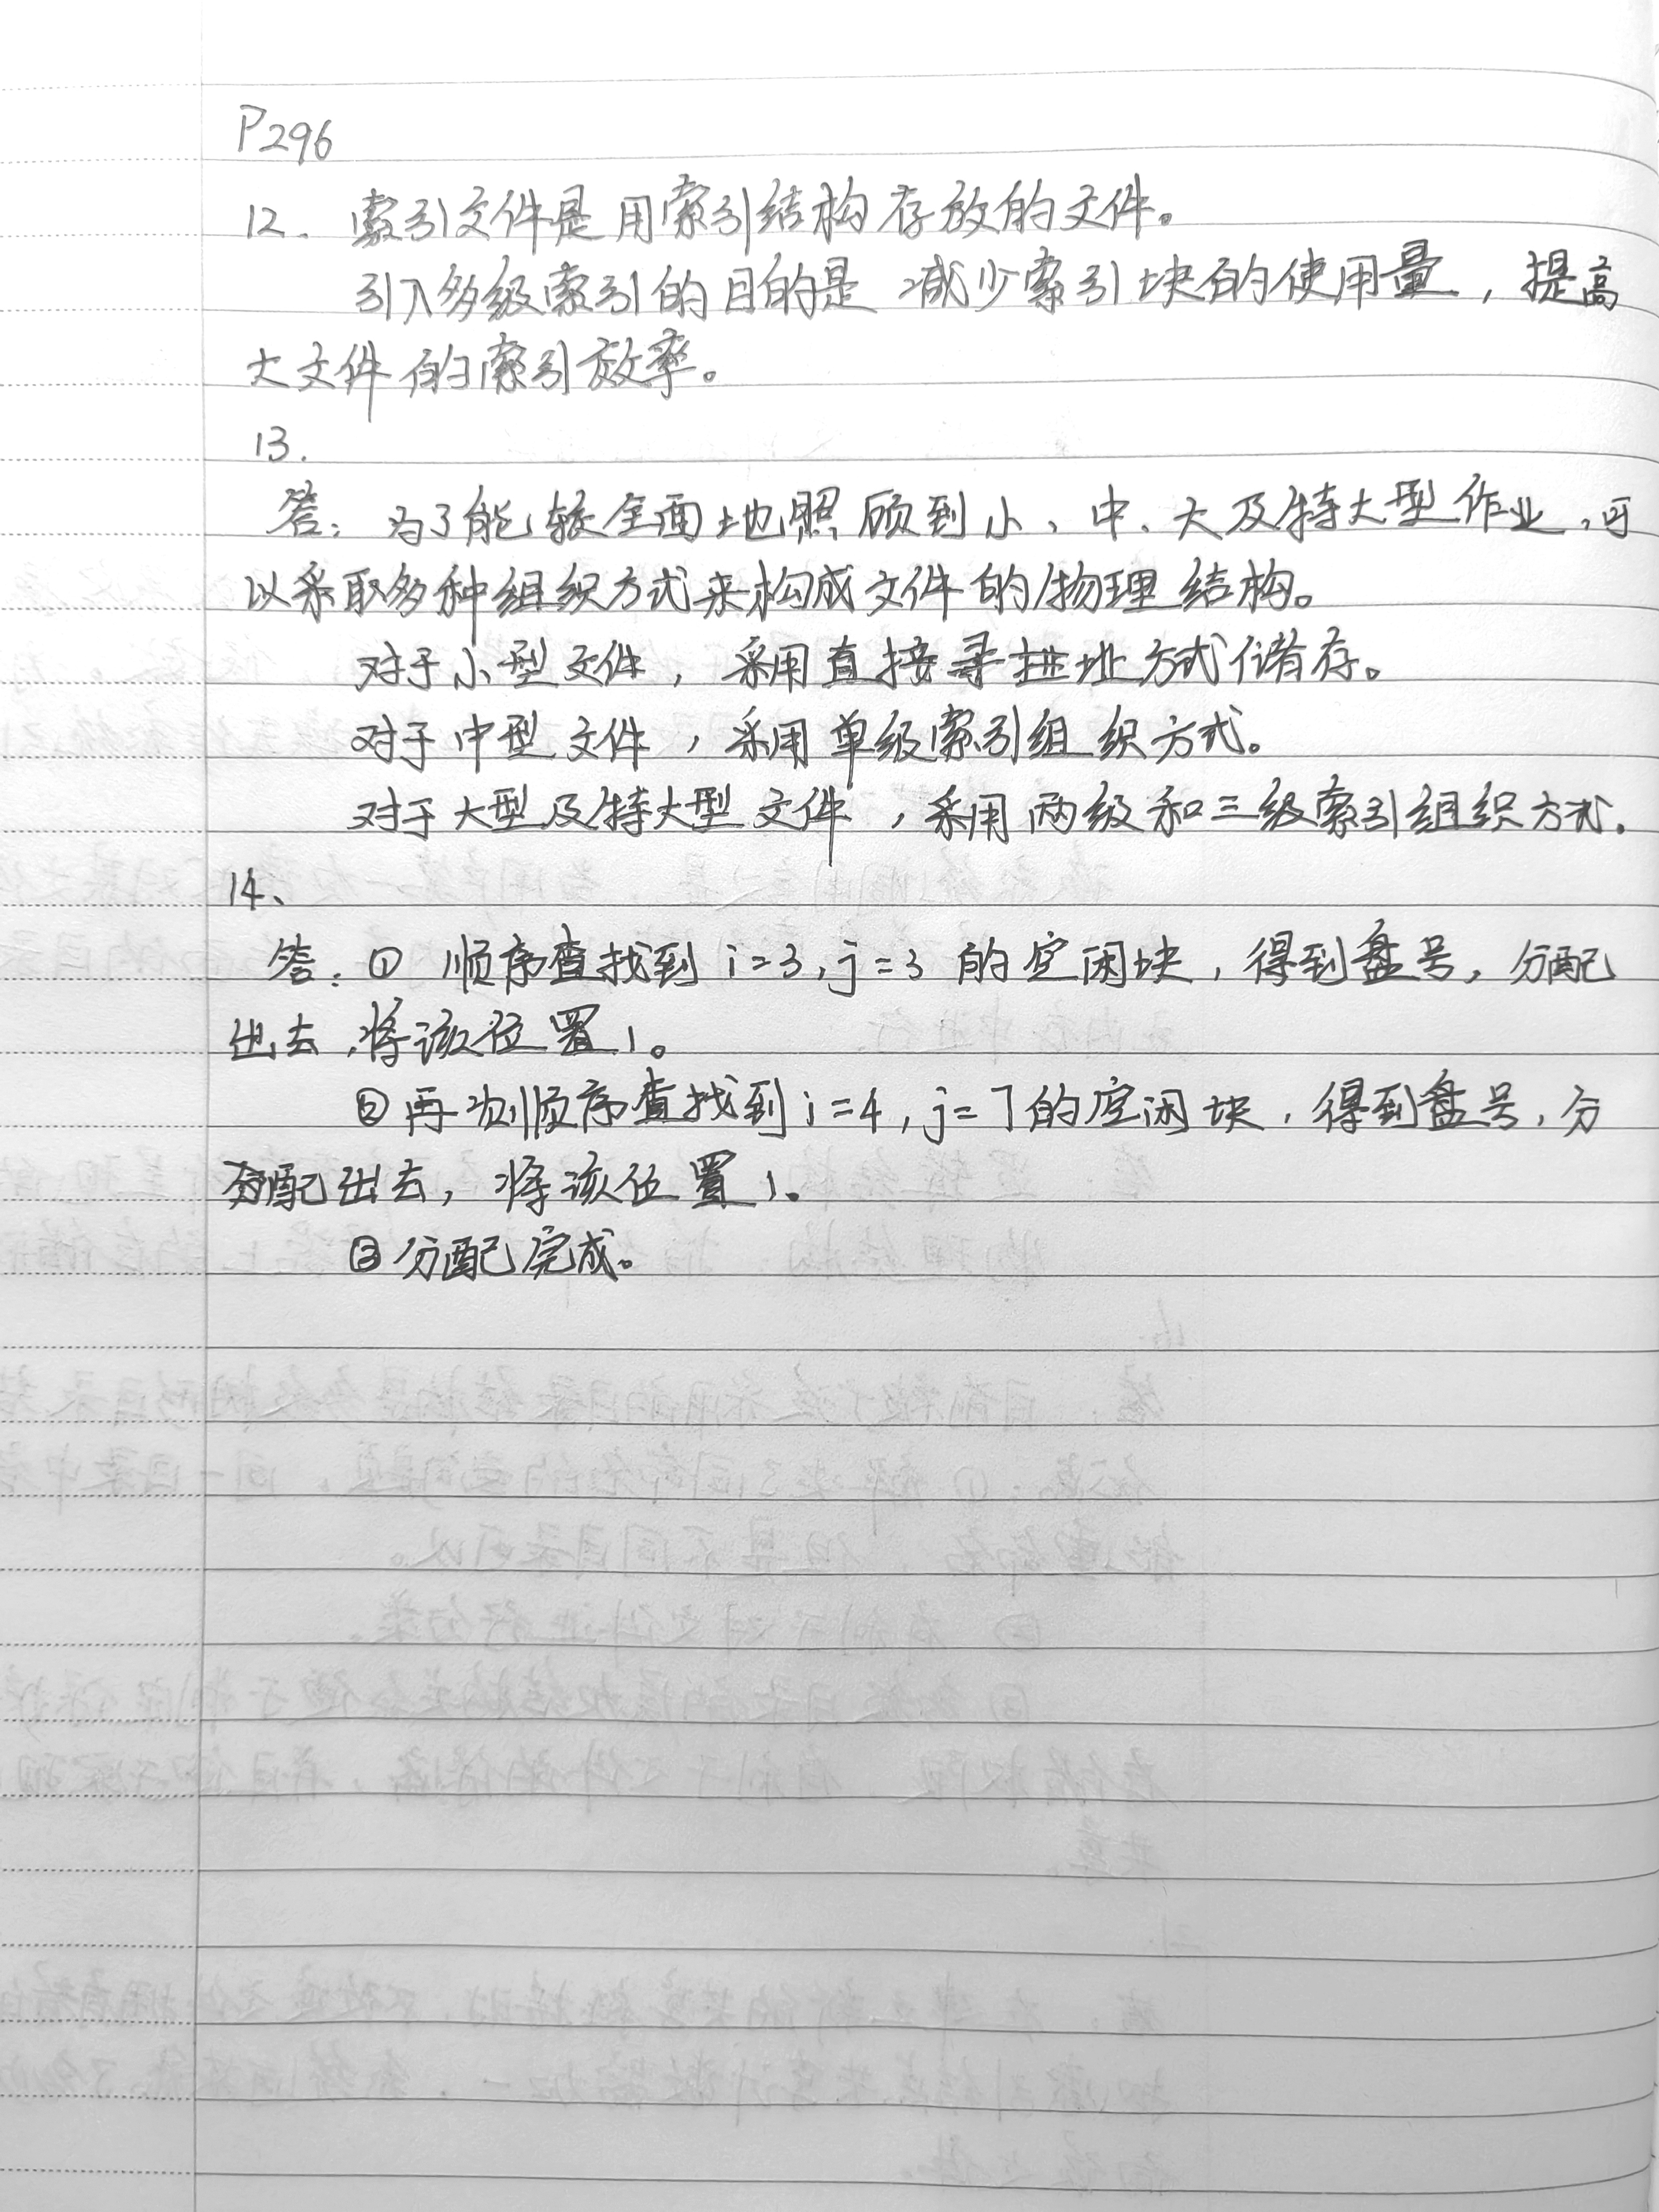 P296
12. 索引文件是用索引结构存放的文件。
引入多级索引的目的是减少索引块的使用量，提高
大文件的索引效率。
13.
答：为了能较全面地照顾到小、中、大及特大型作业，可
以采取多种组织方式来构成文件的物理结构。
对于小型文件，采用直接寻址方式储存。
对于中型文件，采用单级索引组织方式。
对于大型及特大型文件，采用两级和三级索引组织方式.
14、
答：① 顺序查找到 i=3，j=3 的空闲块，得到盘号，分配
出去，将该位置1。
②再次顺序查找到 i=4，j=7的空闲块，得到盘号，分
配出去，将该位置1。
③分配完成。